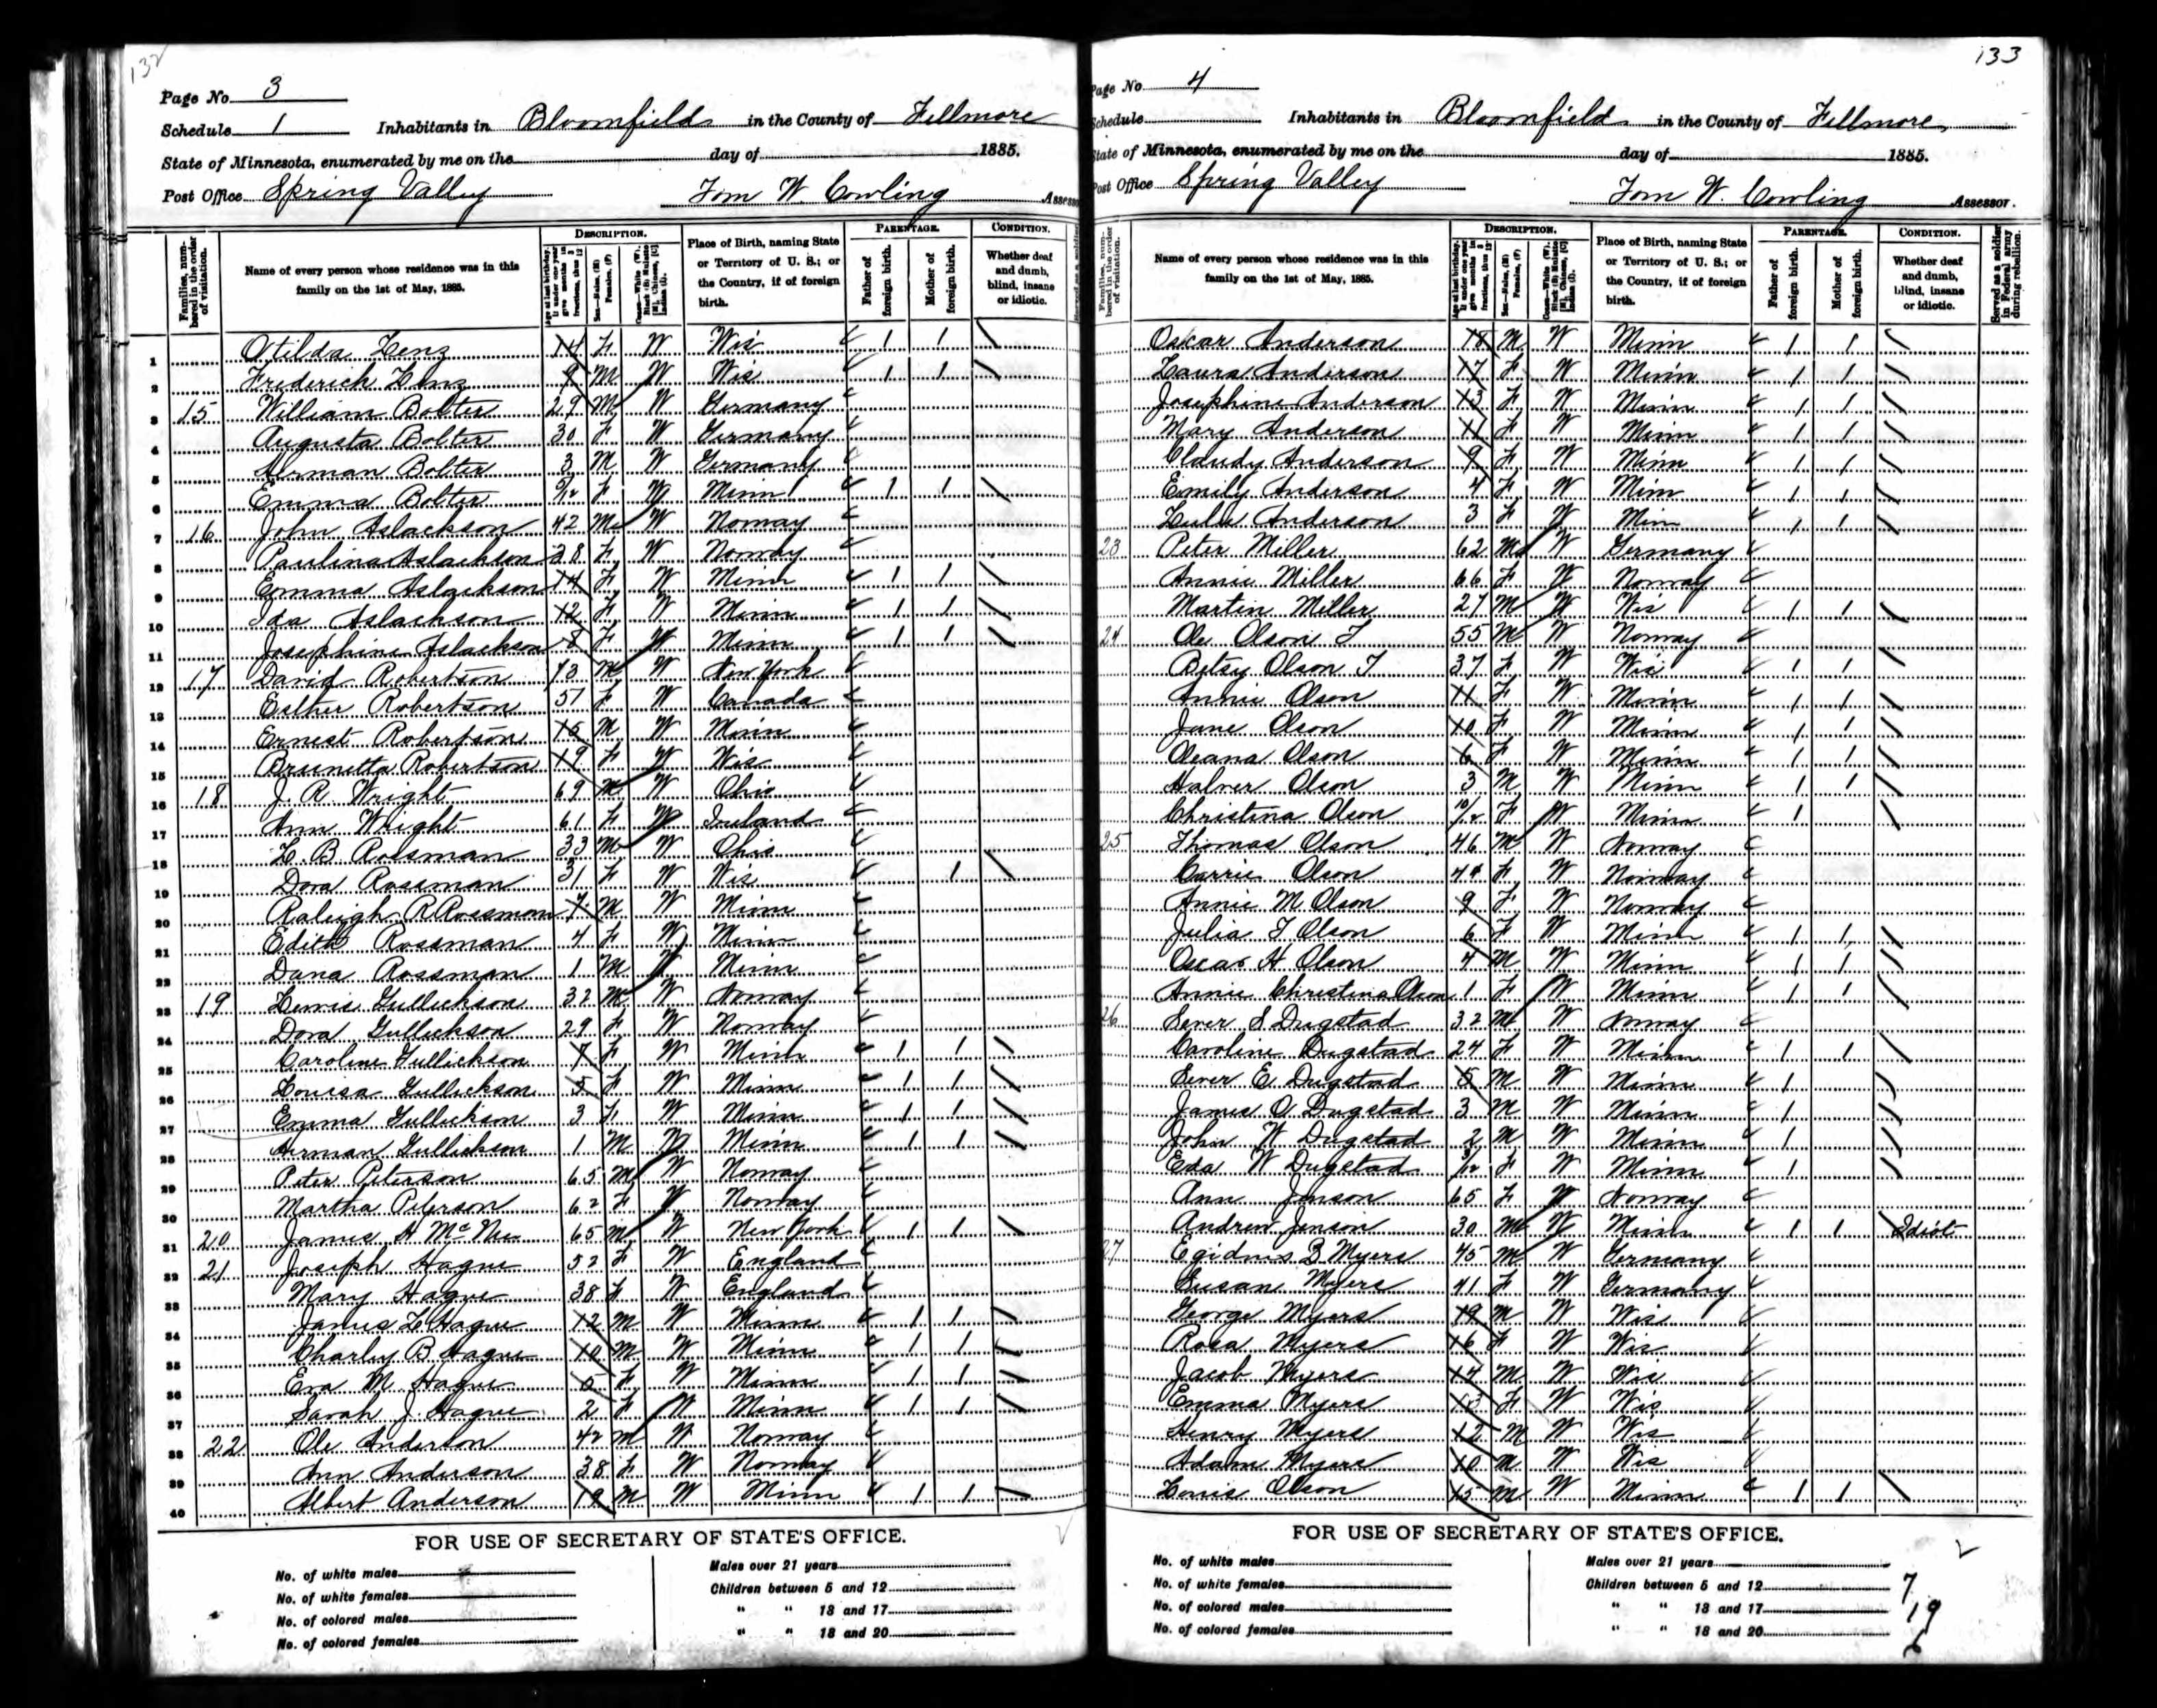 132
Page No. 3
Schedule 1 Inhabitants in Bloomfield in the County of Fillmore
State of Minnesota, enumerated by me on the day of 1885.
Post Office Spring Valley Tom W. Cowling Assessor
Families, numbered in the order of visitation.
Name of every person whose residence was in this family on the 1st of May, 1885.
DESCRIPTION.
Place of Birth, naming State or Territory of U. S.; or the Country, if of foreign birth.
PARENTAGE.
Father of foreign birth.
Mother of foreign birth.
CONDITION.
Whether deaf and dumb, blind, insane or idiotic.
1 Otilda Lenz 14 F W Wis 1 1
2 Friderich Lenz 9 M W Wis 1 1
3 15 William Bolter 29 M W Germany
4 Augusta Bolter 30 F W Germany
5 Herman Bolter 3 M W Germany
6 Emma Bolter F W Minn 1 1
7 16 John Aslackson 42 M W Norway
8 Paulina Aslackson 38 F W Norway
9 Emma Aslackson 14 F W Minn 1 1
10 Ida Aslackson 12 F W Minn 1 1
11 Josephine Aslackson 8 F W Minn 1 1
12 17 David Robertson 73 M W New York
13 Esther Robertson 51 F W Canada
14 Ernest Robertson M W Minn
15 Brunetta Robertson 19 F W Wis
16 18 J. R. Wright 69 M W Ohio
17 Ann Wright 61 F W Ireland
18 L. B Rossman 33 M W Ohio
19 Dora Rossman 31 F W Wis 1
20 Raleigh R Rossman 7 M W Minn
21 Edith Rossman 4 F W Minn
22 Dana Rossman 1 M W Minn
23 19 Lewis Gullickson 32 M W Norway
24 Dora Gullickson 29 F W Norway
25 Caroline Gullickson 7 F W Minn 1 1
26 Louisa Gullickson 5 F W Minn 1 1
27 Emma Gullickson 3 F W Minn 1 1
28 Herman Gullickson 1 M W Minn 1 1
29 Peter Peterson 65 M W Norway
30 Martha Peterson 62 F W Norway
31 20 James H McNee 65 M W New York 1 1
32 21 Joseph Hague 52 F W England
33 Mary Hague 38 F W England
34 James L Hague 12 M W Minn 1 1
35 Charley B Hague 10 M W Minn 1 1
36 Eva M. Hague F W Minn 1 1
37 Sarah J. Hague 2 F W Minn 1 1
38 22 Ole Anderson 42 M W Norway
39 Ann Anderson 38 F W Norway
40 Albert Anderson 19 M W Minn 1 1
FOR USE OF SECRETARY OF STATE'S OFFICE.
No. of white males
No. of white females
No. of colored males
No. of colored females
Males over 21 years
Children between 5 and 12
" " 18 and 17
" " 18 and 20
133
Page No. 4
Schedule Inhabitants in Bloomfield in the County of Fillmore
State of Minnesota, enumerated by me on the day of 1885.
Post Office Spring Valley Tom W. Cowling Assessor.
Families, numbered in the order of visitation.
Name of every person whose residence was in this family on the 1st of May, 1885.
DESCRIPTION.
Place of Birth, naming State or Territory of U. S.; or the Country, if of foreign birth.
PARENTAGE.
Father of foreign birth.
Mother of foreign birth.
CONDITION.
Whether deaf and dumb, blind, insane or idiotic.
Served as a soldier in Federal army during rebellion.
Oskar Anderson 18 M W Minn 1 1
Laura Anderson 17 F W Minn 1 1
Josephine Anderson 13 F W Minn 1 1
Mary Anderson 11 F W Minn 1 1
Claudy Anderson 9 F W Minn 1 1
Emily Anderson 4 F W Minn 1 1
Lulu Anderson 3 F W Min 1 1
23 Peter Miller 62 M W Germany
Annie Miller 66 F W Norway
Martin Miller 27 M W Wis 1 1
24 Ole Olson T 55 M W Norway
Betsy Olson T 37 F W Wis 1 1
Annie Olson 11 F W Minn 1 1
Jane Olson 10 F W Minn 1 1
Oleana Olson 6 F W Minn 1 1
Halver Olson 3 M W Minn 1 1
Christina Olson 10/12 F W Minn 1
25 Thomas Olson 46 M W Norway
Carrie Olson 44 F W Norway
Annie M Olson 9 F W Norway
Julia T Olson 6 F W Minn 1 1
Oscar H Olson 4 M W Minn 1 1
Annie Christena Olson 1 F W Minn 1 1
26 Sever S Dugstad 32 M W Norway
Caroline Dugstad 24 F W Minn 1 1
Sever E Dugstad 5 M W Minn 1
James O Dugstad 3 M W Minn 1
John W Dugstad 2 M W Minn 1
Eda W Dugstad F W Minn 1
Ann Jenson 65 F W Norway
Andrew Jenson 30 M W Minn 1 1 Idiot
27 Egidius B Myers 45 M W Germany
Susan Myers 41 F W Germany
George Myers 19 M W Wis
Rosa Myers 16 F W Wis
Jacob Myers 14 M W Wis
Emma Myers 13 F W Wis
Henry Myers 12 M W Wis
Adam Myers 10 M W Wis
Louis Olson 15 M W Minn 1 1
FOR USE OF SECRETARY OF STATE'S OFFICE.
No. of white males
No. of white females
No. of colored males
No. of colored females
Males over 21 years
Children between 5 and 12 7
" " 18 and 17 19
" " 18 and 20 6